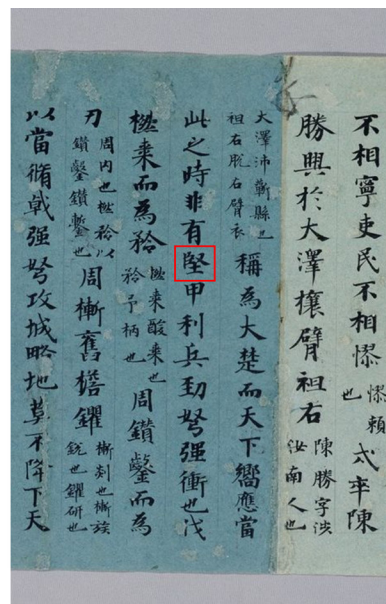 不相寧吏民不相憀憀賴也戍率陳
勝興於大澤攘臂袒右陳勝字涉汝南人也
大澤沛蘄縣也袒右脫右臂衣稱為大楚而天下嚮應當
此之時非有堅甲利兵勁弩强衝也伐
橪棗而為矜橪棗酸棗也矜矛柄也周鑽鑿而為
刃周内也橪矜以鑽鑿鑽鏨也周槧舊檐钁槧剡也槧族銳也钁斫也
以當脩戟强弩攻城略地莫不降下天